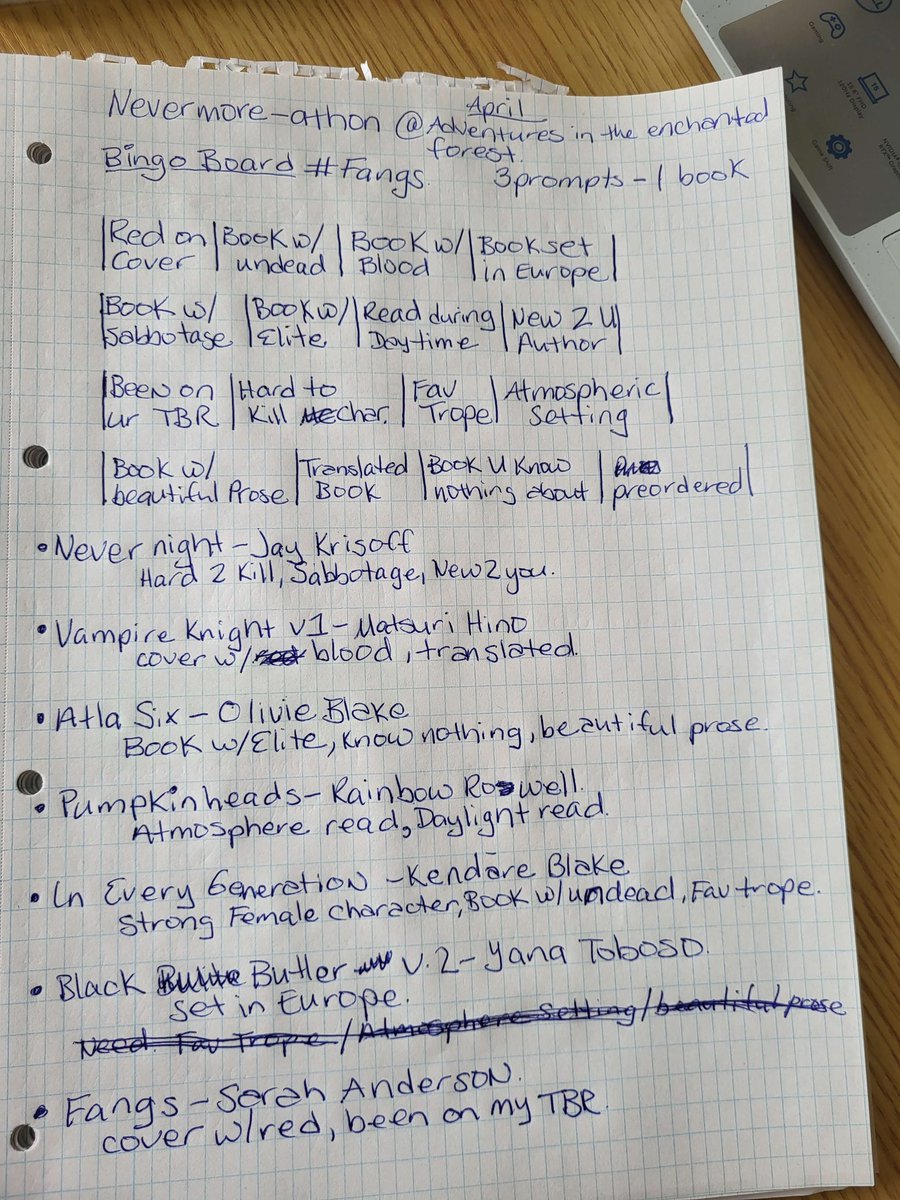 Nevermore-athon @ April
Adventures in the enchanted
forest.
Bingo Board #Fangs. 3prompts - 1 book
Red on Book w/ Book w/ Book set
Cover undead Blood in Europe
Book w/ Book w/ Read during New 2 U
Sabbotage Elite Daytime Author
Been on Hard to Fav Atmospheric
ur TBR Kill char. Trope Setting
Book w/ Translated Book U Know
beautiful Prose Book nothing about preordered
• Never night - Jay Krisoff
Hard 2 Kill, Sabbotage, New2you.
• Vampire Knight v1 - Matsuri Hino
cover w/ blood, translated.
• Atla Six - Olivie Blake
Book w/Elite, know nothing, beautiful prose.
• Pumpkinheads - Rainbow Rowell.
Atmosphere read, Daylight read.
• In Every Generation - Kendare Blake
Strong Female character, Book w/undead, Fav trope.
• Black Butler v.2 - Yana Toboso.
Set in Europe.
Need Fav Trope / Atmosphere Setting / beautiful prose
• Fangs - Sarah Anderson.
cover w/red, been on my TBR.
Gaming